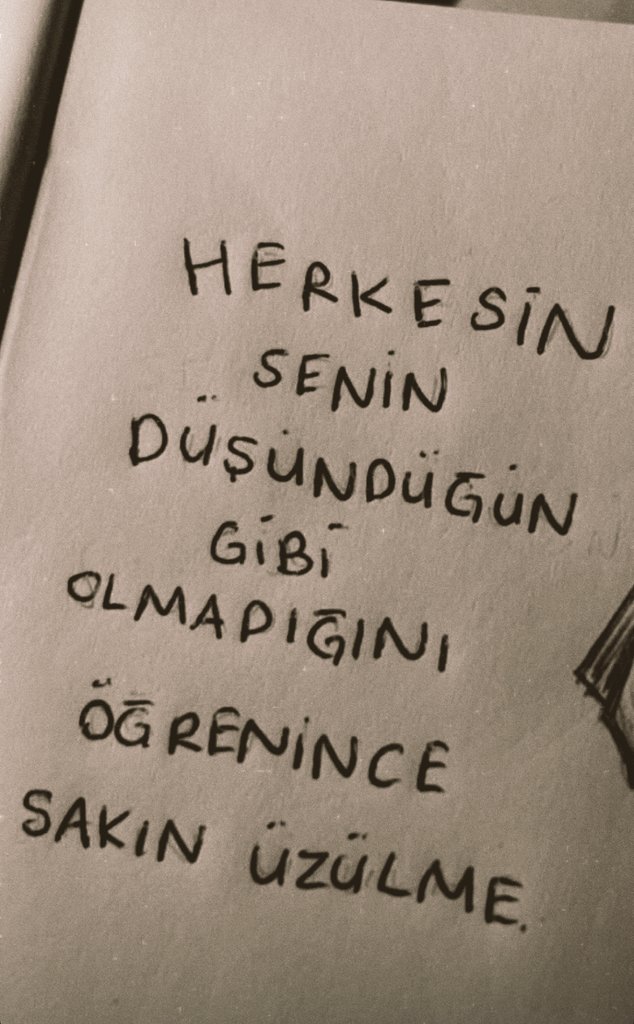 HERKESİN
SENİN
DÜŞÜNDÜĞÜN
GİBİ
OLMADIĞINI
ÖĞRENİNCE
SAKIN ÜZÜLME.